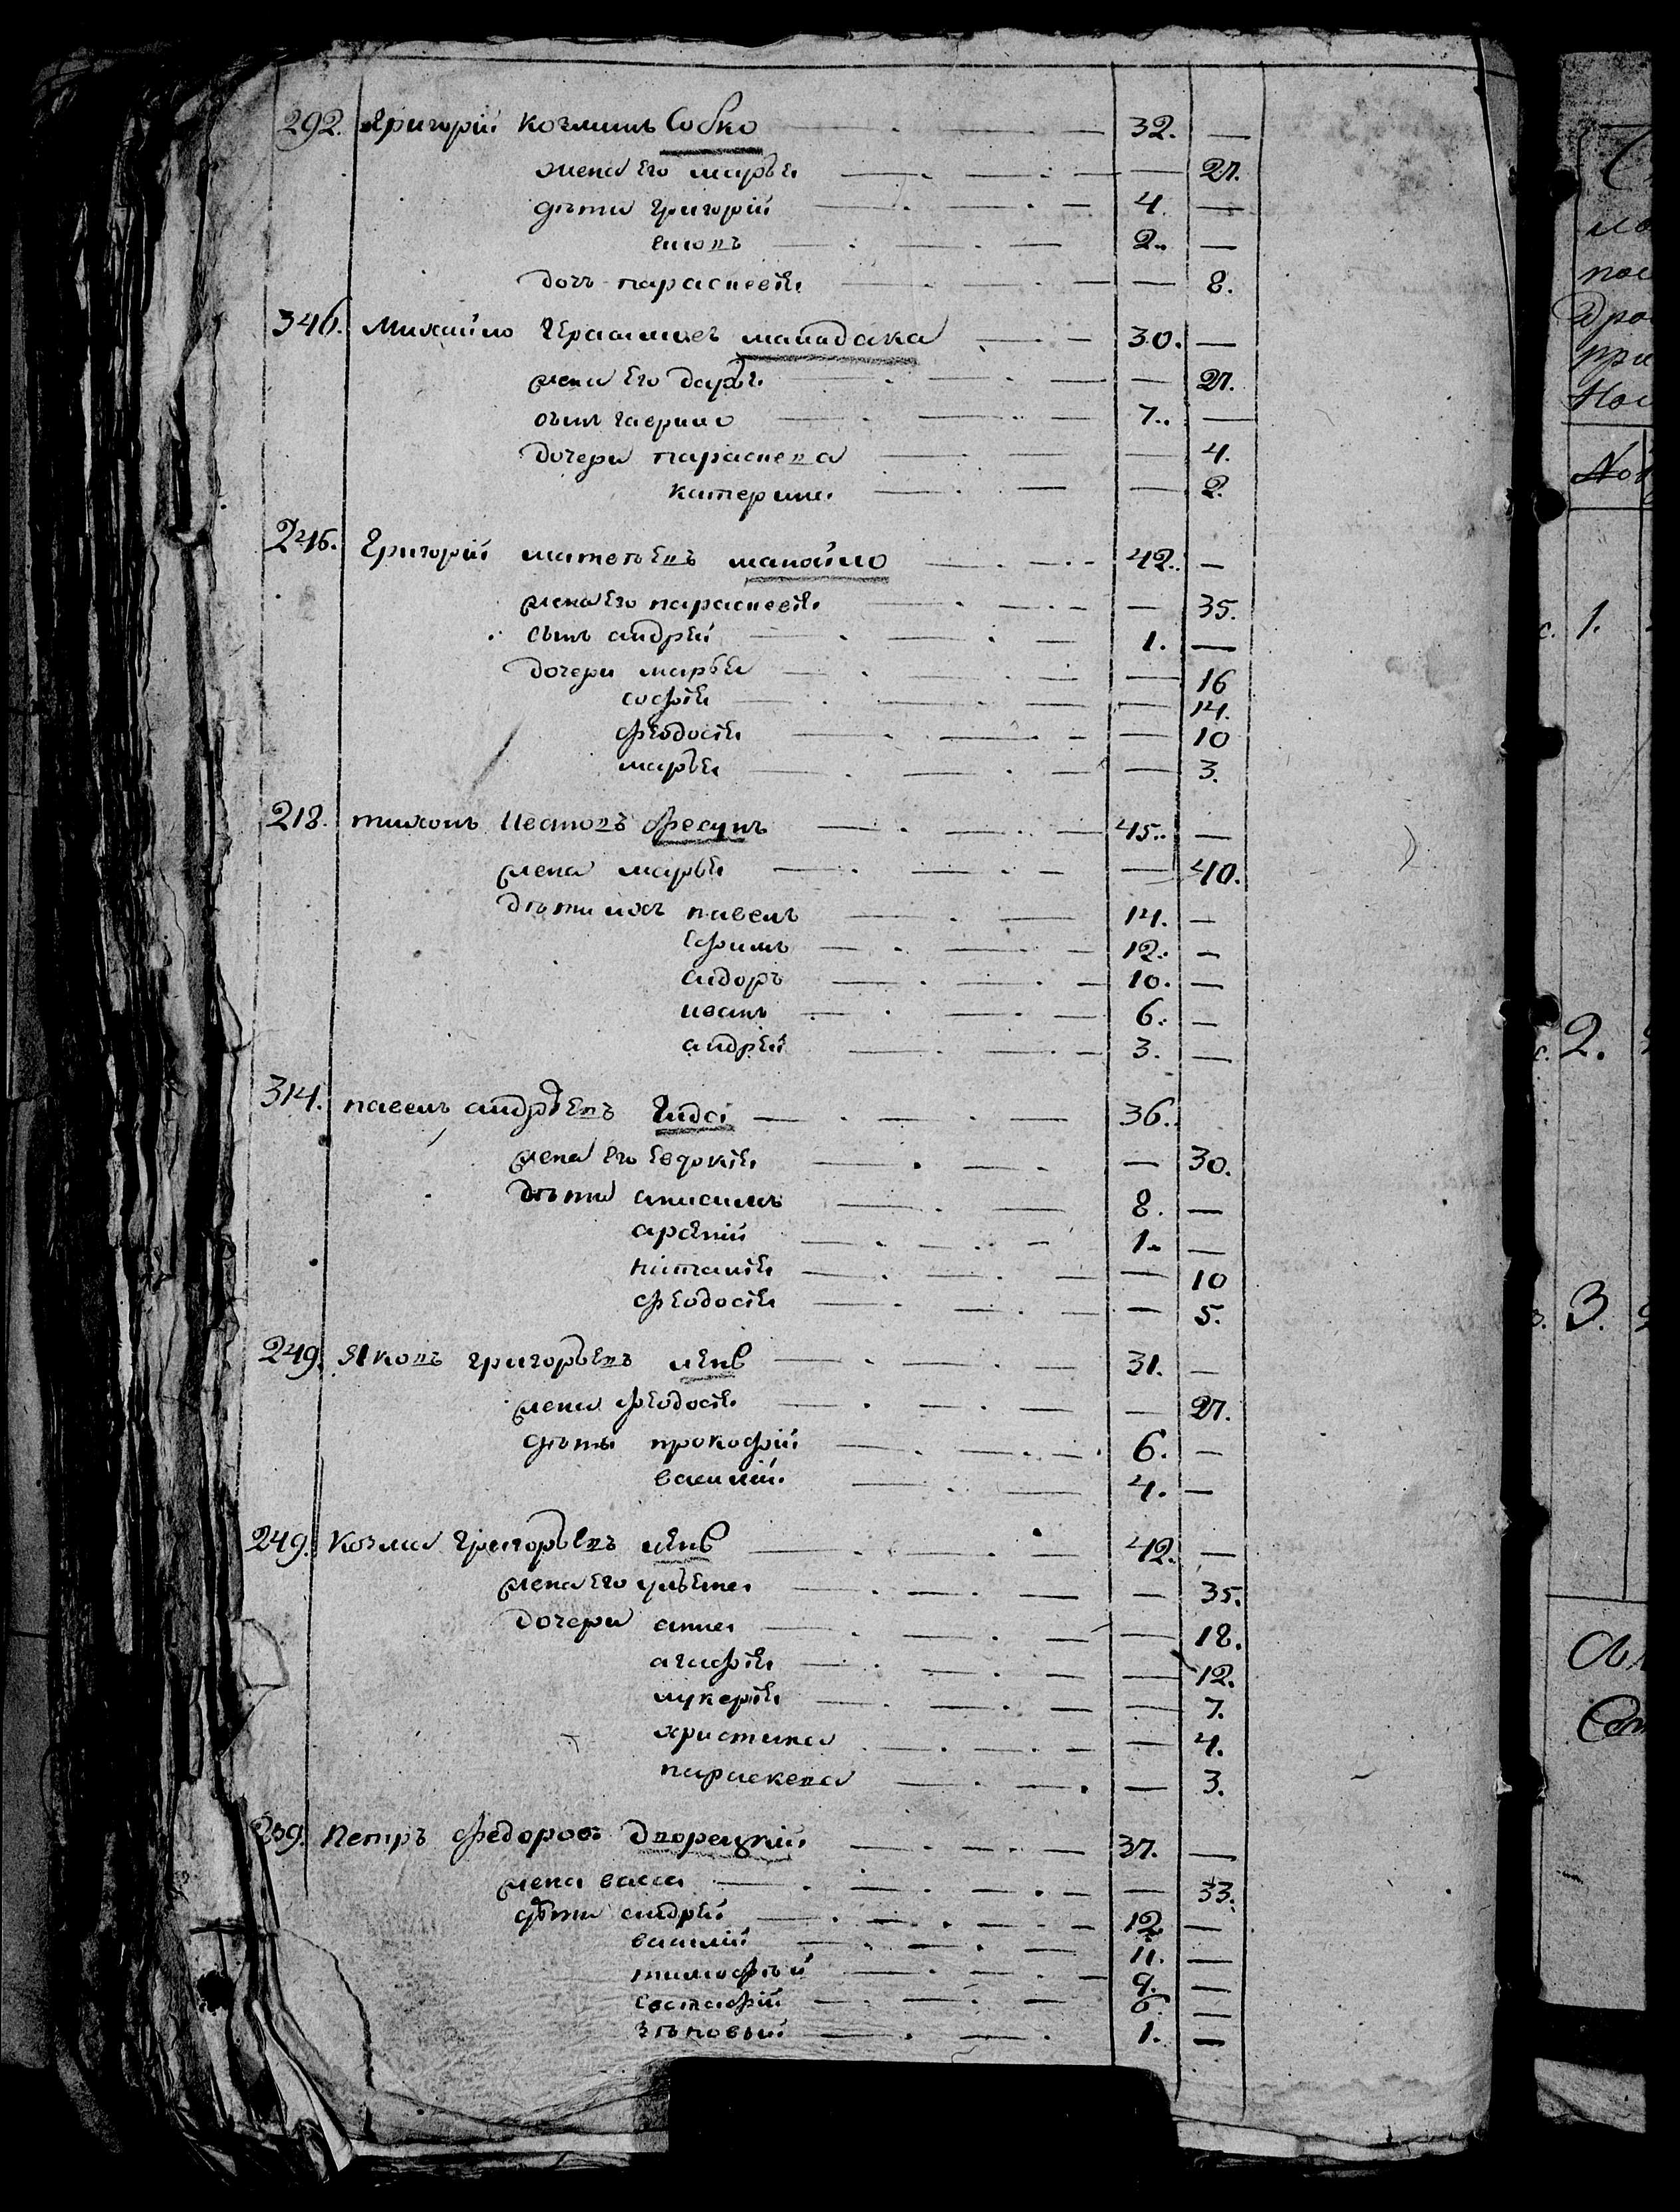 292. Григорій Козминъ Собко — 32. —
жена Его марья — — 27.
дѣти Григорій — 4. —
2. —
дочь параскевія — — 8.
346. Михайло Герасимовъ — 30. —
жена Его дарья — — 27.
сынъ гаврило — 7. —
дочери параскева — — 4.
катерина — — 2.
246. Григорій матвѣевъ манойло — 42. —
жена Его параскевія — — 35.
сынъ андрей — 1. —
дочери марья — — 16
софія — — 14.
феодосія — — 10
марья — — 3.
218. тихонъ Ивановъ фесунъ — 45. —
жена марья — — 40.
дѣти ихъ павелъ — 14. —
Ефимъ — 12. —
сидоръ — 10. —
иванъ — 6. —
андрей — 3. —
314. павелъ андрѣевъ — 36.
жена Его Евдокія — — 30.
дѣти анисимъ — 8. —
арсеній — 1. —
наталія — — 10
феодосія — — 5.
249. Яковъ григорьевъ — 31. —
жена феодосія — — 27.
дѣти прокофій — 6. —
василій — 4. —
249. Козма Григорьевъ — 42. —
жена Его ульяна — — 35.
дочери анна — — 18.
агафія — — 12.
лукерія — — 7.
христина — — 4.
параскева — — 3.
239. Петръ федоровъ дворецкій — 37. —
жена васса — — 33.
дѣти андрей — 12 —
василій — 11. —
тимофѣй — 9. —
Евстафій — 6. —
зѣновый — 1. —
1.
2.
3.